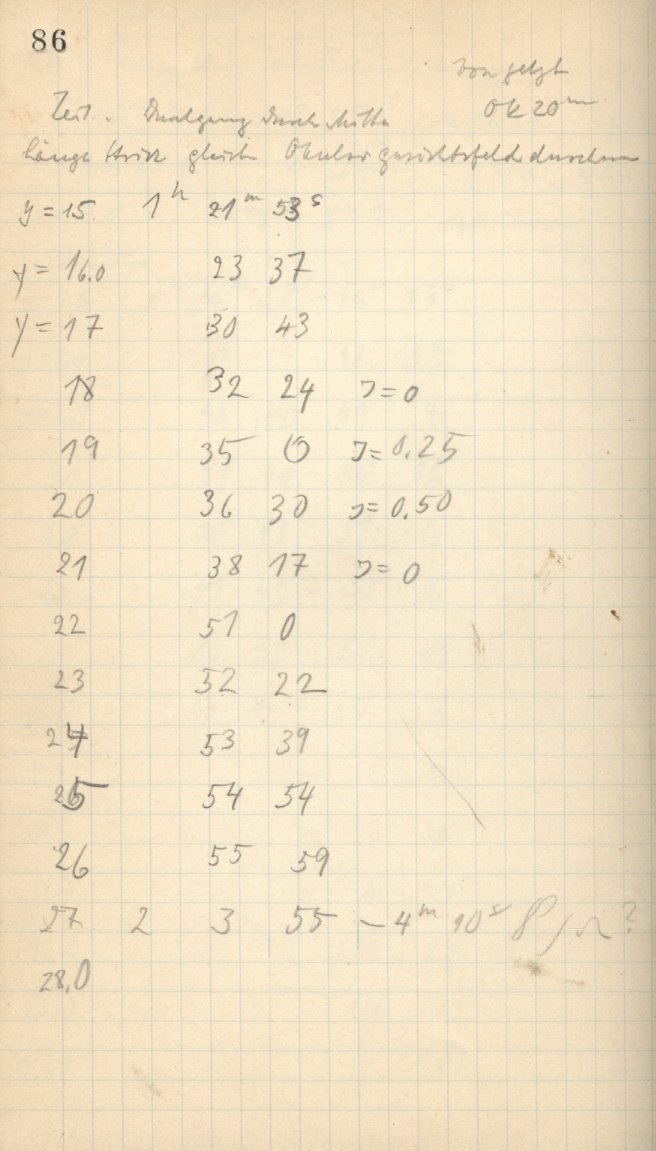 86
von jetzt
Ok 20 mm
Zeit. Durchgang durch Mitte
länge Strich gleich Okulargesichtsfelddurchm
y = 15 1h 21m 53s
y = 16.0 23 37
y = 17 30 43
18 32 24 = 0
19 35 0 = 0.25
20 36 30 = 0.50
21 38 17 = 0
22 51 0
23 52 22
24 53 39
25 54 54
26 55 59
27 2 3 55 – 4m 10s ?
28.0